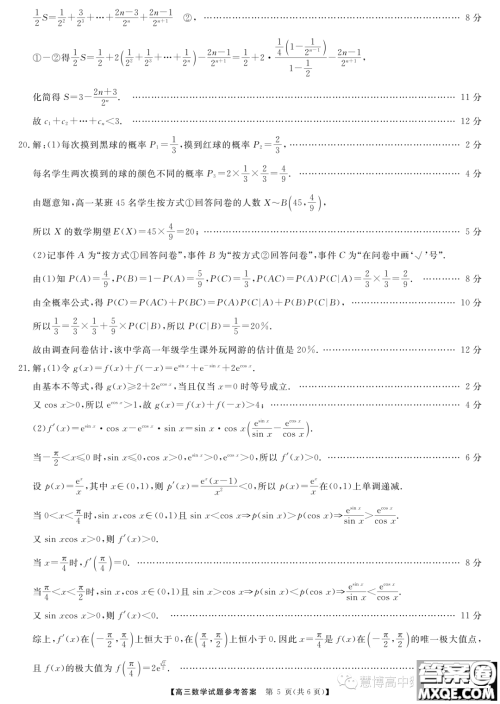 1/2 S=1/2²+3/2³+…+(2n-3)/2ⁿ+(2n-1)/2ⁿ⁺¹ ②, …… 8 分
①-②得1/2 S=1/2+2(1/2²+1/2³+…+1/2ⁿ)-(2n-1)/2ⁿ⁺¹=1/2+2·[1/4(1-1/2ⁿ⁻¹)]/(1-1/2)-(2n-1)/2ⁿ⁺¹,
化简得 S=3-(2n+3)/2ⁿ. …… 11 分
故 c₁+c₂+…+cₙ<3. …… 12 分
20.解:(1)每次摸到黑球的概率 P₁=1/3,摸到红球的概率 P₂=2/3, …… 2 分
每名学生两次摸到的球的颜色不同的概率 P₃=2×1/3×2/3=4/9. …… 4 分
由题意知,高一某班 45 名学生按方式①回答问卷的人数 X~B(45,4/9),
所以 X 的数学期望 E(X)=45×4/9=20; …… 5 分
(2)记事件 A 为“按方式①回答问卷”,事件 B 为“按方式②回答问卷”,事件 C 为“在问卷中画‘√’号”.
由(1)知 P(A)=4/9,P(B)=1-P(A)=5/9,P(C)=1/3,P(AC)=P(A)P(C|A)=2/3×1/3=2/9. …… 8 分
由全概率公式,得 P(C)=P(AC)+P(BC)=P(A)P(C|A)+P(B)P(C|B), …… 10 分
所以1/3=2/3×1/3+5/9×P(C|B),所以 P(C|B)=1/5=20%.
故由调查问卷估计,该中学高一年级学生课外玩网游的估计值是 20%. …… 12 分
21.解:(1)令 g(x)=f(x)+f(-x)=e^(sin x)+e^(-sin x)+2e^(cos x).
由基本不等式,得 g(x)≥2+2e^(cos x),当且仅当 x=0 时等号成立. …… 2 分
又 cos x>0,所以 e^(cos x)>1,故 g(x)=f(x)+f(-x)>4; …… 4 分
(2)f′(x)=e^(sin x)·cos x-e^(cos x)·sin x=sin x·cos x(e^(sin x)/sin x-e^(cos x)/cos x).
当-π/2<x≤0 时,sin x≤0,cos x>0,e^(sin x)>0,e^(cos x)>0,所以 f′(x)>0. …… 6 分
设 p(x)=eˣ/x,其中 x∈(0,1),则 p′(x)=eˣ(x-1)/x²<0,所以 p(x)=eˣ/x 在(0,1)上单调递减.
当 0<x<π/4时,sin x,cos x∈(0,1)且 sin x<cos x⇒p(sin x)>p(cos x)⇒e^(sin x)/sin x>e^(cos x)/cos x.
又 sin xcos x>0,则 f′(x)>0.
当 x=π/4时,f′(π/4)=0. …… 8 分
当π/4<x<π/2时,sin x,cos x∈(0,1)且 sin x>cos x⇒p(sin x)<p(cos x)⇒e^(sin x)/sin x<e^(cos x)/cos x.
又 sin xcos x>0,则 f′(x)<0. …… 11 分
综上,f′(x)在(-π/2,π/4)上恒大于 0,在(π/4,π/2)上恒小于 0.因此 x=π/4是 f(x)在(-π/2,π/2)的唯一极大值点,
且 f(x)的极大值为 f(π/4)=2e^(√2/2). ……
【高三数学试题参考答案 第 5 页(共 6 页)】
慧博高中数
答案圈
MXQE.COM